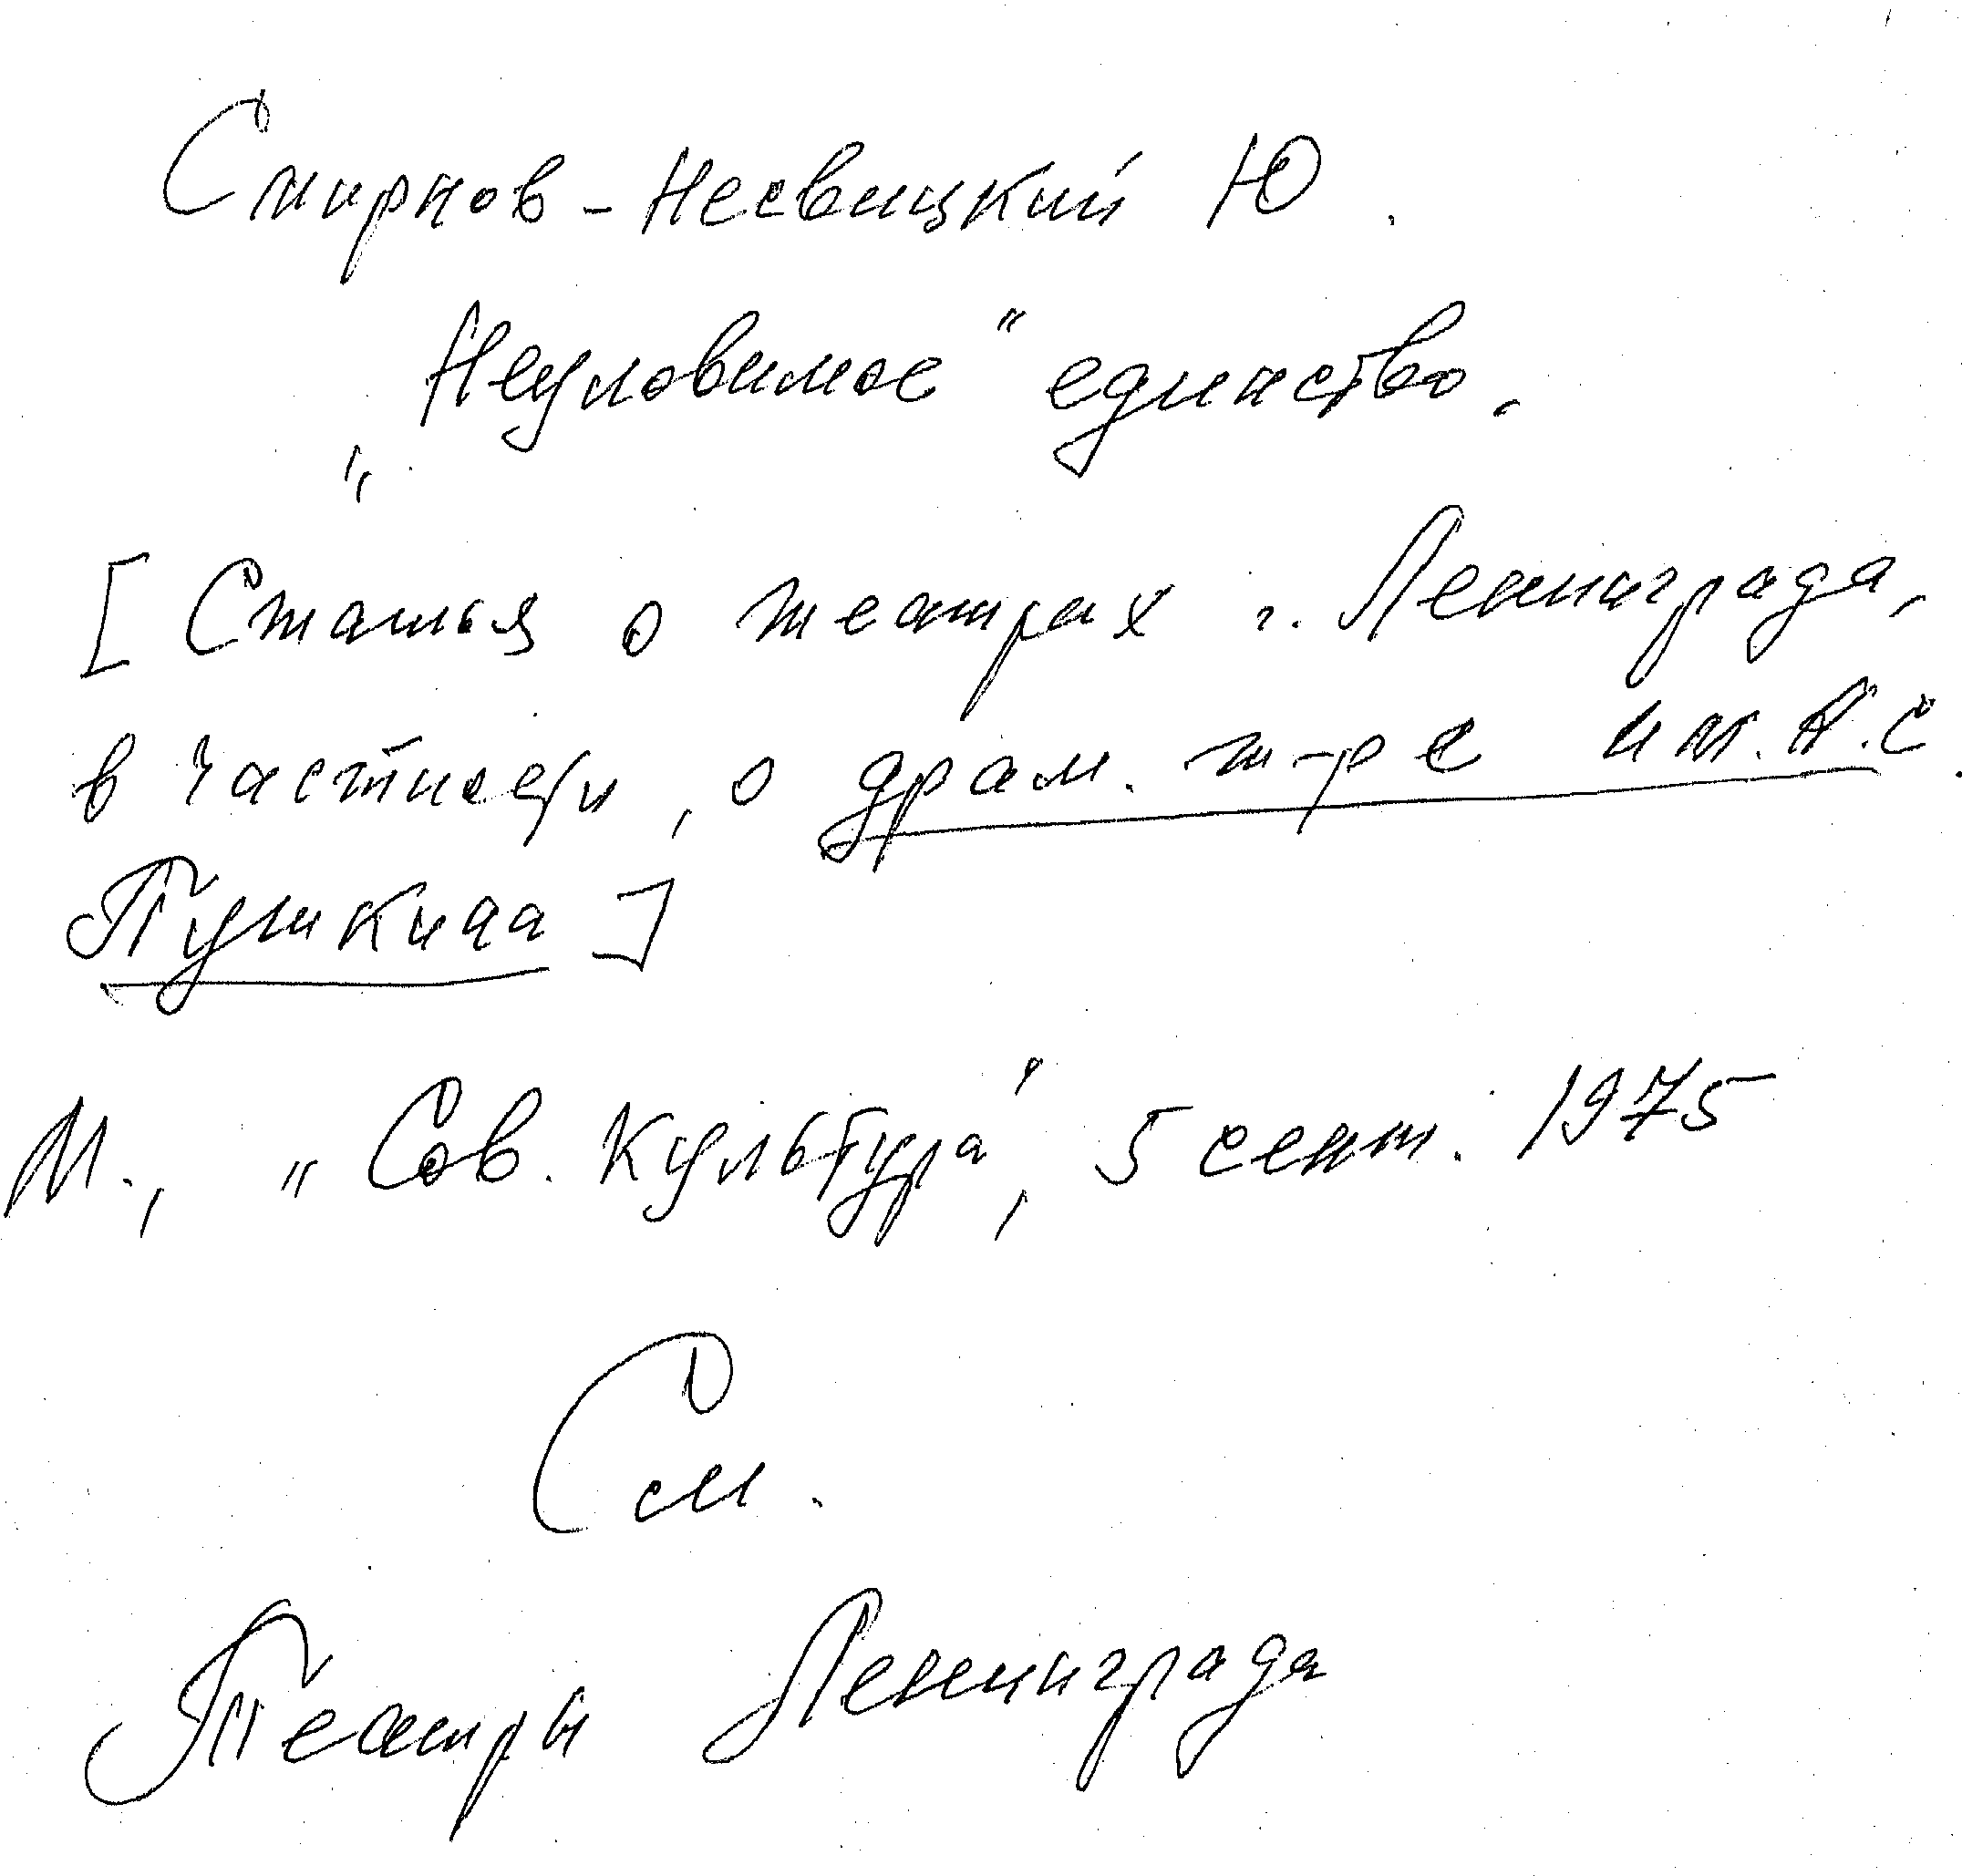 Смирнов-Несвицкий Ю.
„Неуловимое“ единство.
[Статья о театрах г. Ленинграда,
в частности, о драм. т-ре им. А.С.
Пушкина]
М., „Сов. культура“, 5 сент. 1975
См.
Театры Ленинграда